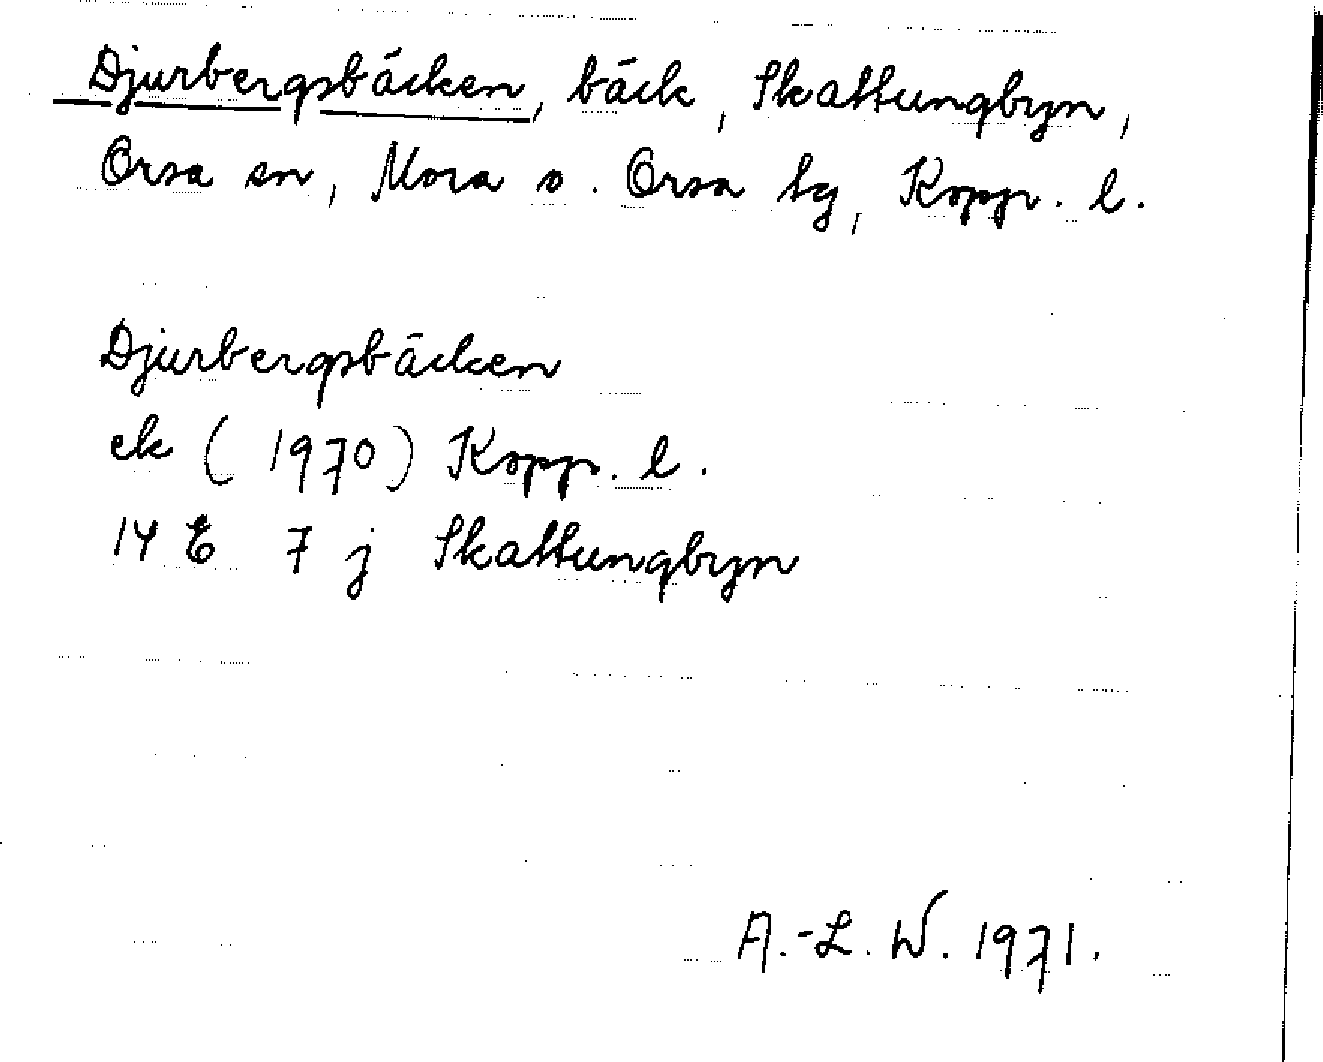 Djurbergsbäcken, bäck, Skattungbyn,
Orsa sn, Mora o. Orsa tg, Kopp. l.
Djurbergsbäcken
ek (1970) Kopp. l.
14 E 7 j Skattungbyn
A.-L. W. 1971.